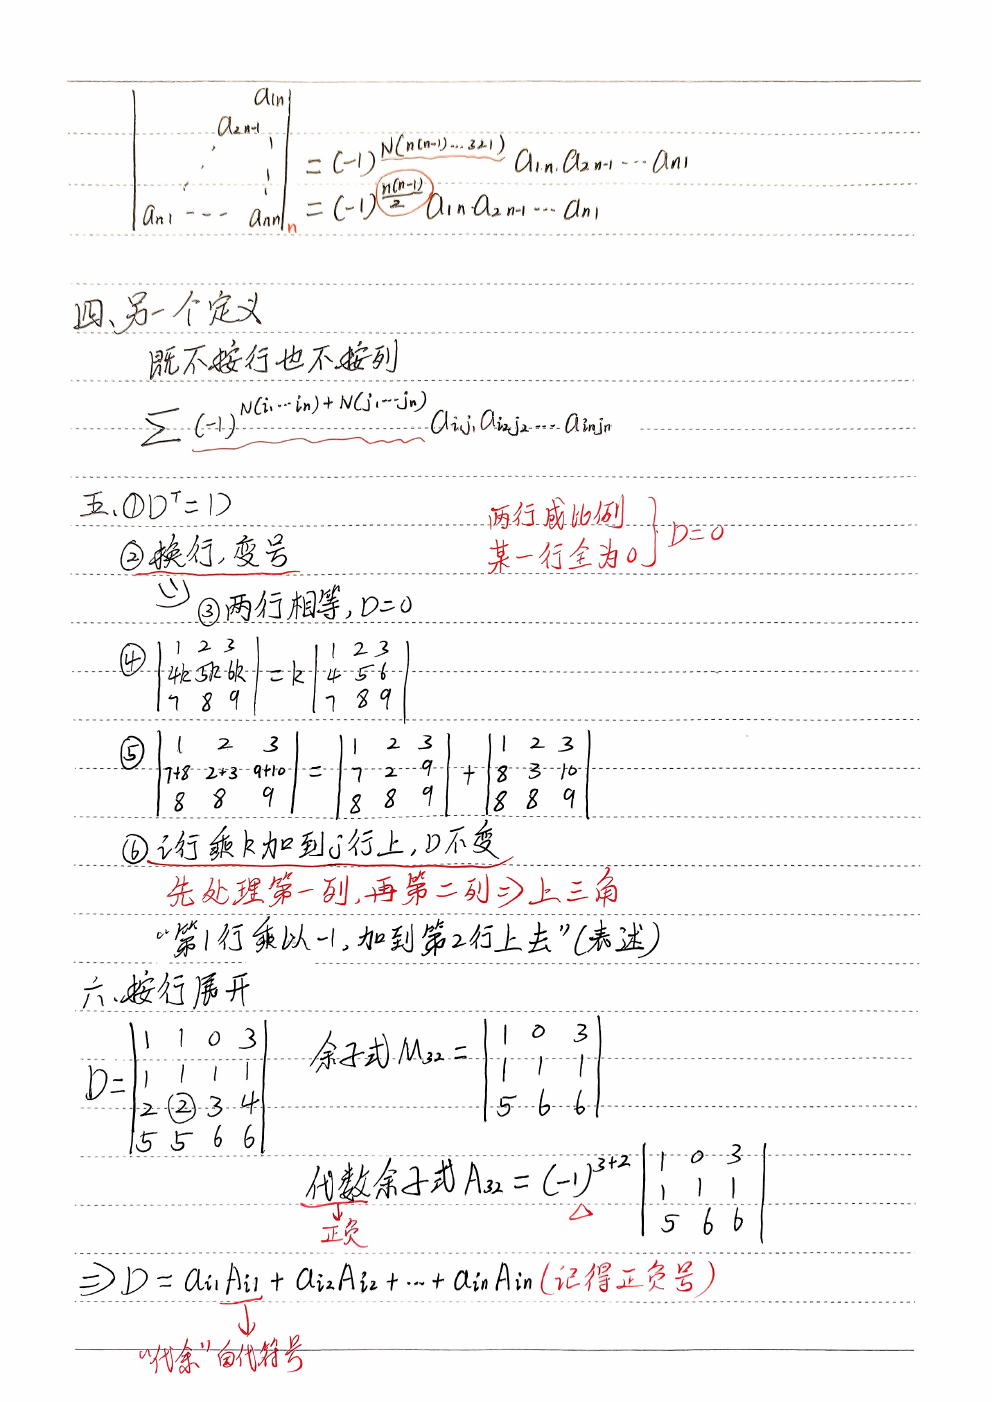 a1n
a2n-1
an1 --- ann n
= (-1)^N(n(n-1)…321) a1n.a2n-1 … an1
= (-1)^n(n-1)/2 a1n.a2n-1 … an1
四、另一个定义
既不按行也不按列
∑ (-1)^N(i1…in)+N(j1…jn) ai1j1 ai2j2 … ainjn
五、①D^T=D
②换行,变号
③两行相等,D=0
两行成比例
某一行全为0 } D=0
④ |1 2 3| = k |1 2 3|
|4k 5k 6k| |4 5 6|
|7 8 9| |7 8 9|
⑤ |1 2 3| = |1 2 3| + |1 2 3|
|7+8 2+3 9+10| |7 2 9| |8 3 10|
|8 8 9| |8 8 9| |8 8 9|
⑥i行乘k加到j行上,D不变
先处理第一列,再第二列⇒上三角
“第1行乘以-1,加到第2行上去”(表述)
六、按行展开
D= |1 1 0 3|
|1 1 1 1|
|2 ② 3 4|
|5 5 6 6|
余子式M32= |1 0 3|
|1 1 1|
|5 6 6|
代数余子式A32=(-1)^3+2 |1 0 3|
|1 1 1|
|5 6 6|
正负
⇒D=ai1Ai1+ai2Ai2+…+ainAin(记得正负号)
“代余”自代符号